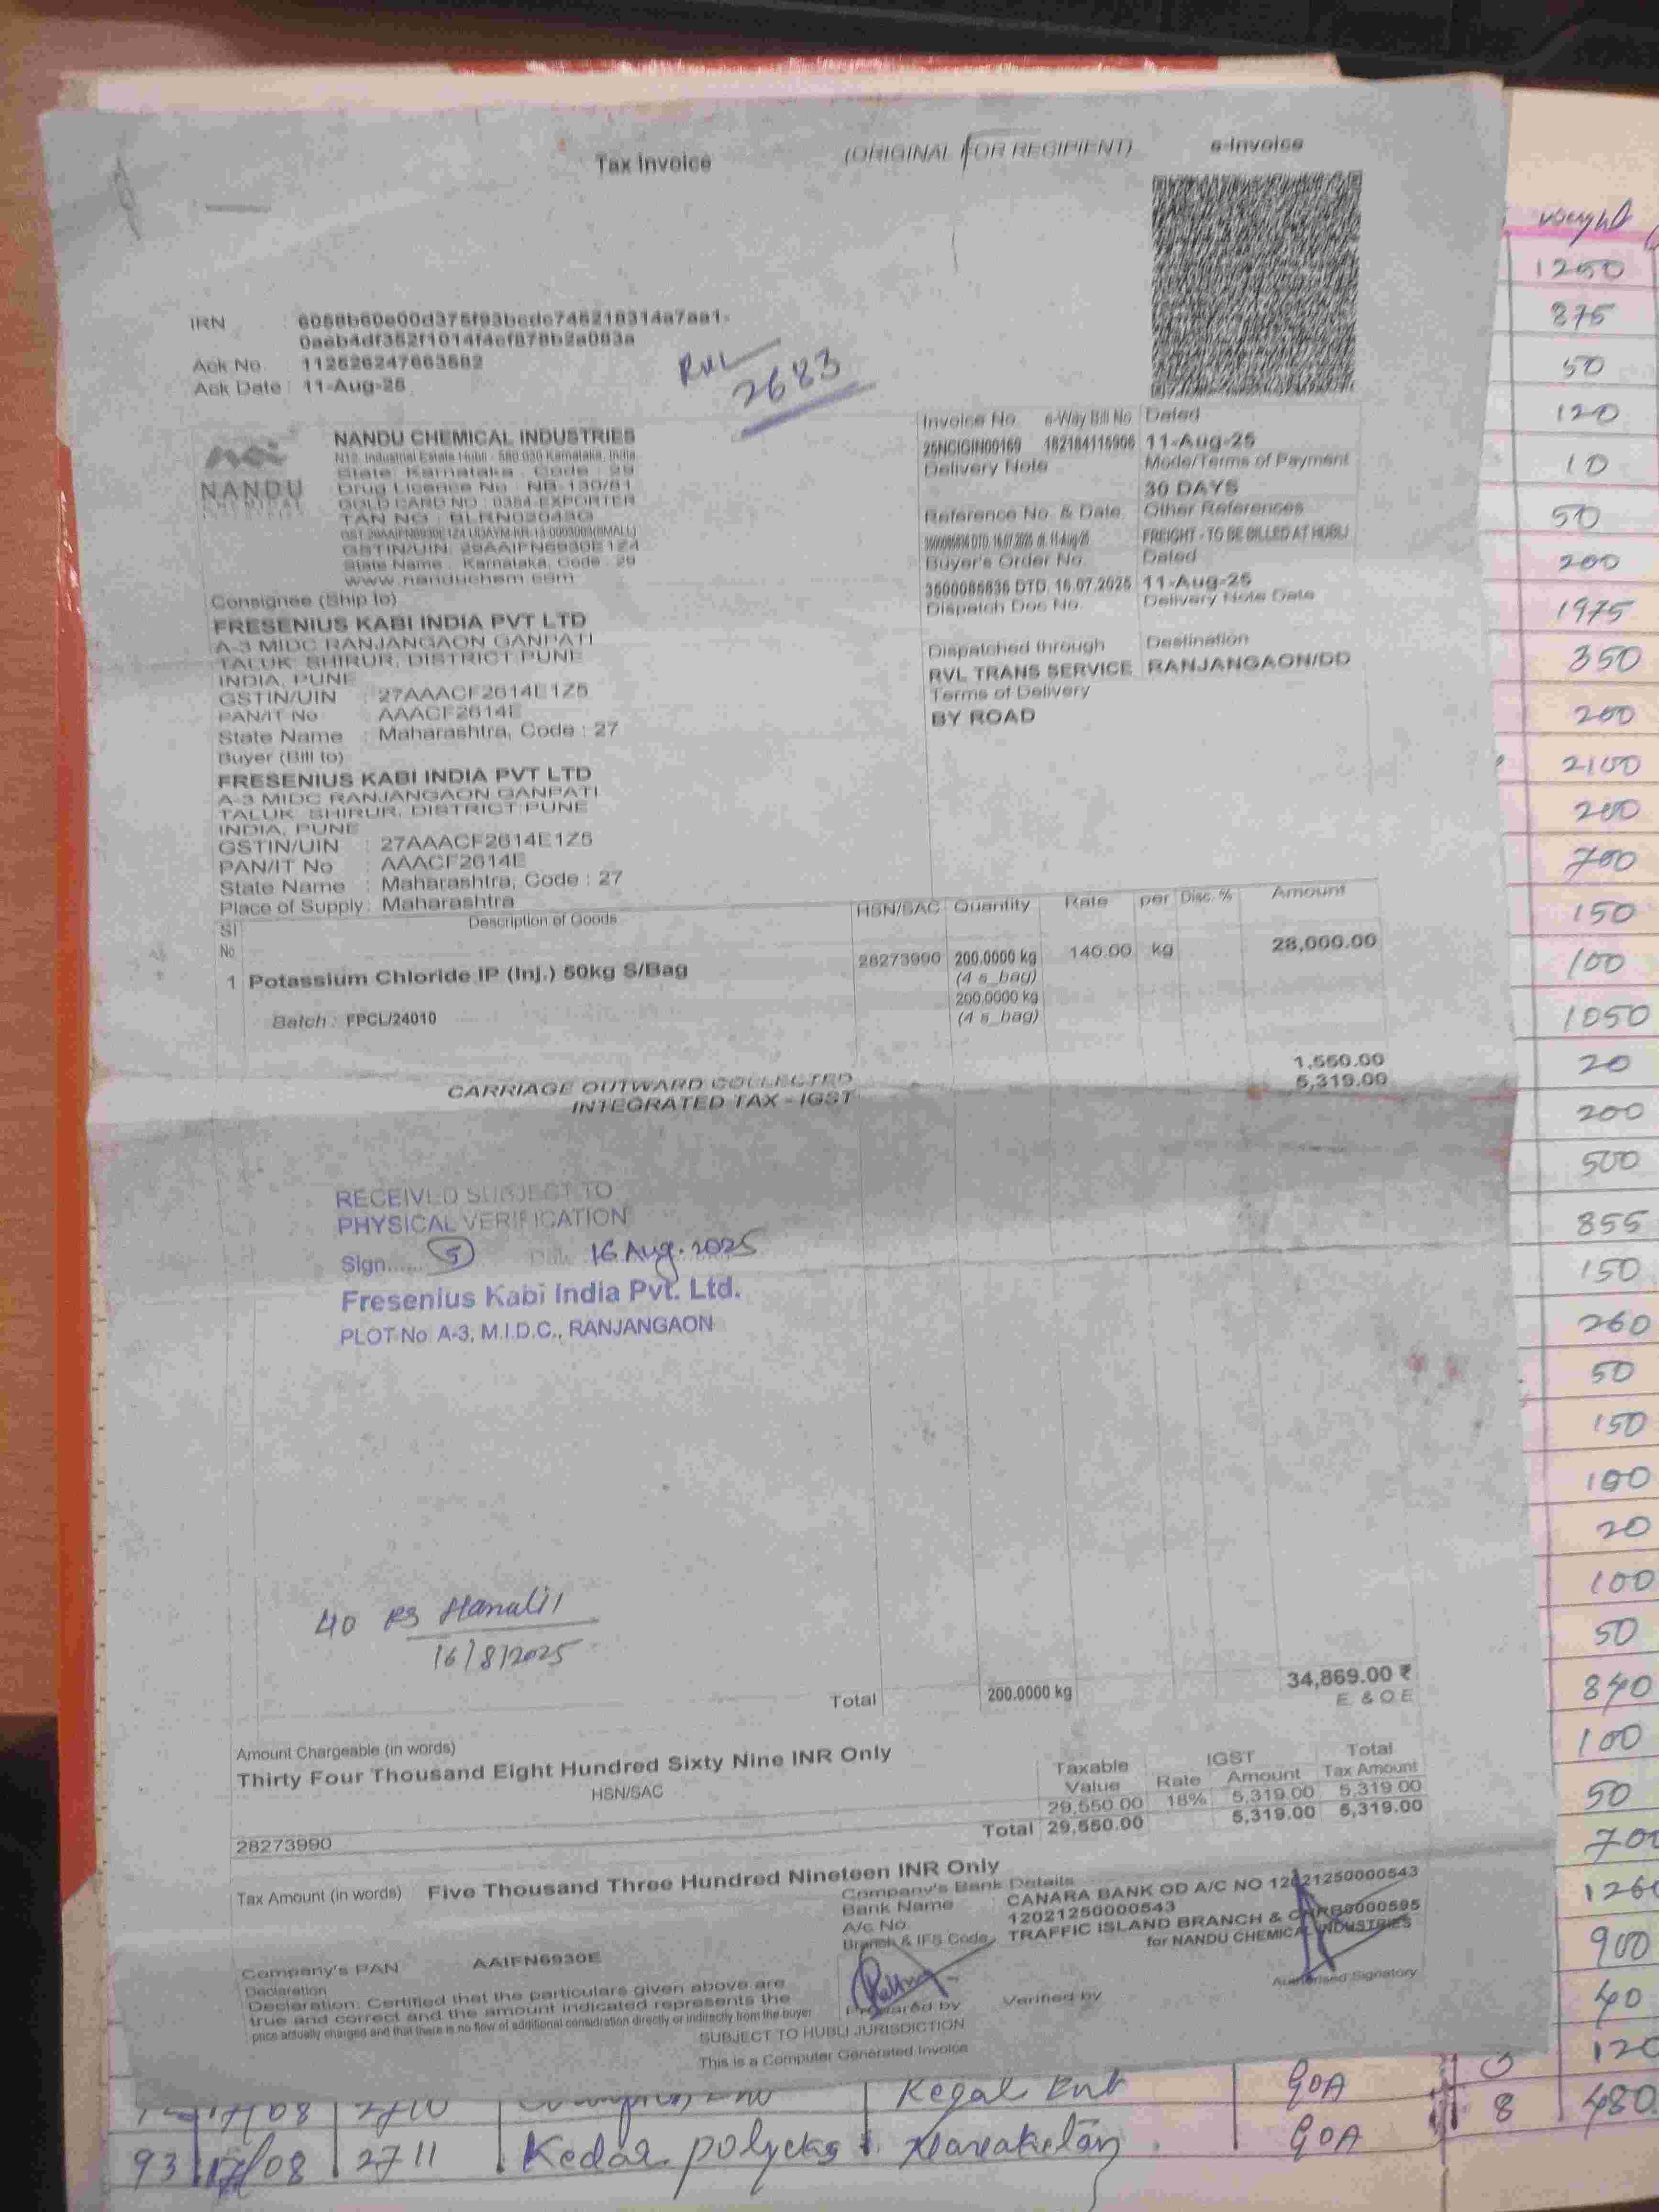 Tax Invoice
(ORIGINAL FOR RECIPIENT)
e-Invoice
IRN
Ack No. 112526247663582
Ack Date : 11-Aug-25
RVL
2683
nci
NANDU
CHEMICAL
NANDU CHEMICAL INDUSTRIES
N12, Industrial Estate Hubli - 580 030 Karnataka, India
State: Karnataka, Code : 29
Drug Licence No : NB-130/81
GOLD CARD NO : 0364-EXPORTER
State Name : Karnataka, Code : 29
www.nanduchem.com
Invoice No. e-Way Bill No. Dated
25NCIGIN00169 182184115906 11-Aug-25
Delivery Note Mode/Terms of Payment
30 DAYS
Reference No. & Date. Other References
FREIGHT - TO BE BILLED AT HUBLI
Buyer's Order No. Dated
3500086836 DTD. 16.07.2025 11-Aug-25
Dispatch Doc No. Delivery Note Date
Dispatched through Destination
RVL TRANS SERVICE RANJANGAON/DD
Terms of Delivery
BY ROAD
Consignee (Ship to)
FRESENIUS KABI INDIA PVT LTD
A-3 MIDC RANJANGAON GANPATI
TALUK: SHIRUR, DISTRICT PUNE
INDIA, PUNE
GSTIN/UIN : 27AAACF2614E1Z5
PAN/IT No : AAACF2614E
State Name : Maharashtra, Code : 27
Buyer (Bill to)
FRESENIUS KABI INDIA PVT LTD
A-3 MIDC RANJANGAON GANPATI
TALUK: SHIRUR, DISTRICT PUNE
INDIA, PUNE
GSTIN/UIN : 27AAACF2614E1Z5
PAN/IT No : AAACF2614E
State Name : Maharashtra, Code : 27
Place of Supply : Maharashtra
Sl No Description of Goods HSN/SAC Quantity Rate per Disc. % Amount
1 Potassium Chloride IP (Inj.) 50kg S/Bag 28273990 200.0000 kg 140.00 kg 28,000.00
(4 s_bag)
200.0000 kg
Batch : FPCL/24010 (4 s_bag)
CARRIAGE OUTWARD COLLECTED 1,550.00
INTEGRATED TAX - IGST 5,319.00
RECEIVED SUBJECT TO
PHYSICAL VERIFICATION
Sign...... Date 16 Aug. 2025
Fresenius Kabi India Pvt. Ltd.
PLOT No. A-3, M.I.D.C., RANJANGAON
40 RS Hamali
16/8/2025
Total 200.0000 kg 34,869.00 ₹
E. & O.E
Amount Chargeable (in words)
Thirty Four Thousand Eight Hundred Sixty Nine INR Only
HSN/SAC Taxable Value IGST Rate Amount Total Tax Amount
28273990 29,550.00 18% 5,319.00 5,319.00
Total 29,550.00 5,319.00 5,319.00
Tax Amount (in words) Five Thousand Three Hundred Nineteen INR Only
Company's Bank Details
Bank Name CANARA BANK OD A/C NO 12021250000543
A/c No. 12021250000543
Branch & IFS Code TRAFFIC ISLAND BRANCH &
for NANDU CHEMICAL INDUSTRIES
Company's PAN AAIFN6930E
Declaration
Declaration: Certified that the particulars given above are
true and correct and the amount indicated represents the
price actually charged and that there is no flow of additional considration directly or indirectly from the buyer
Prepared by Verified by Authorised Signatory
SUBJECT TO HUBLI JURISDICTION
This is a Computer Generated Invoice
weight
1250
875
50
120
10
50
200
1975
350
200
2100
200
700
150
100
1050
20
200
500
855
150
260
50
150
100
20
100
50
840
100
50
700
1260
900
40
120
GOA 8 480
93 17/08 2711 Kedar GOA